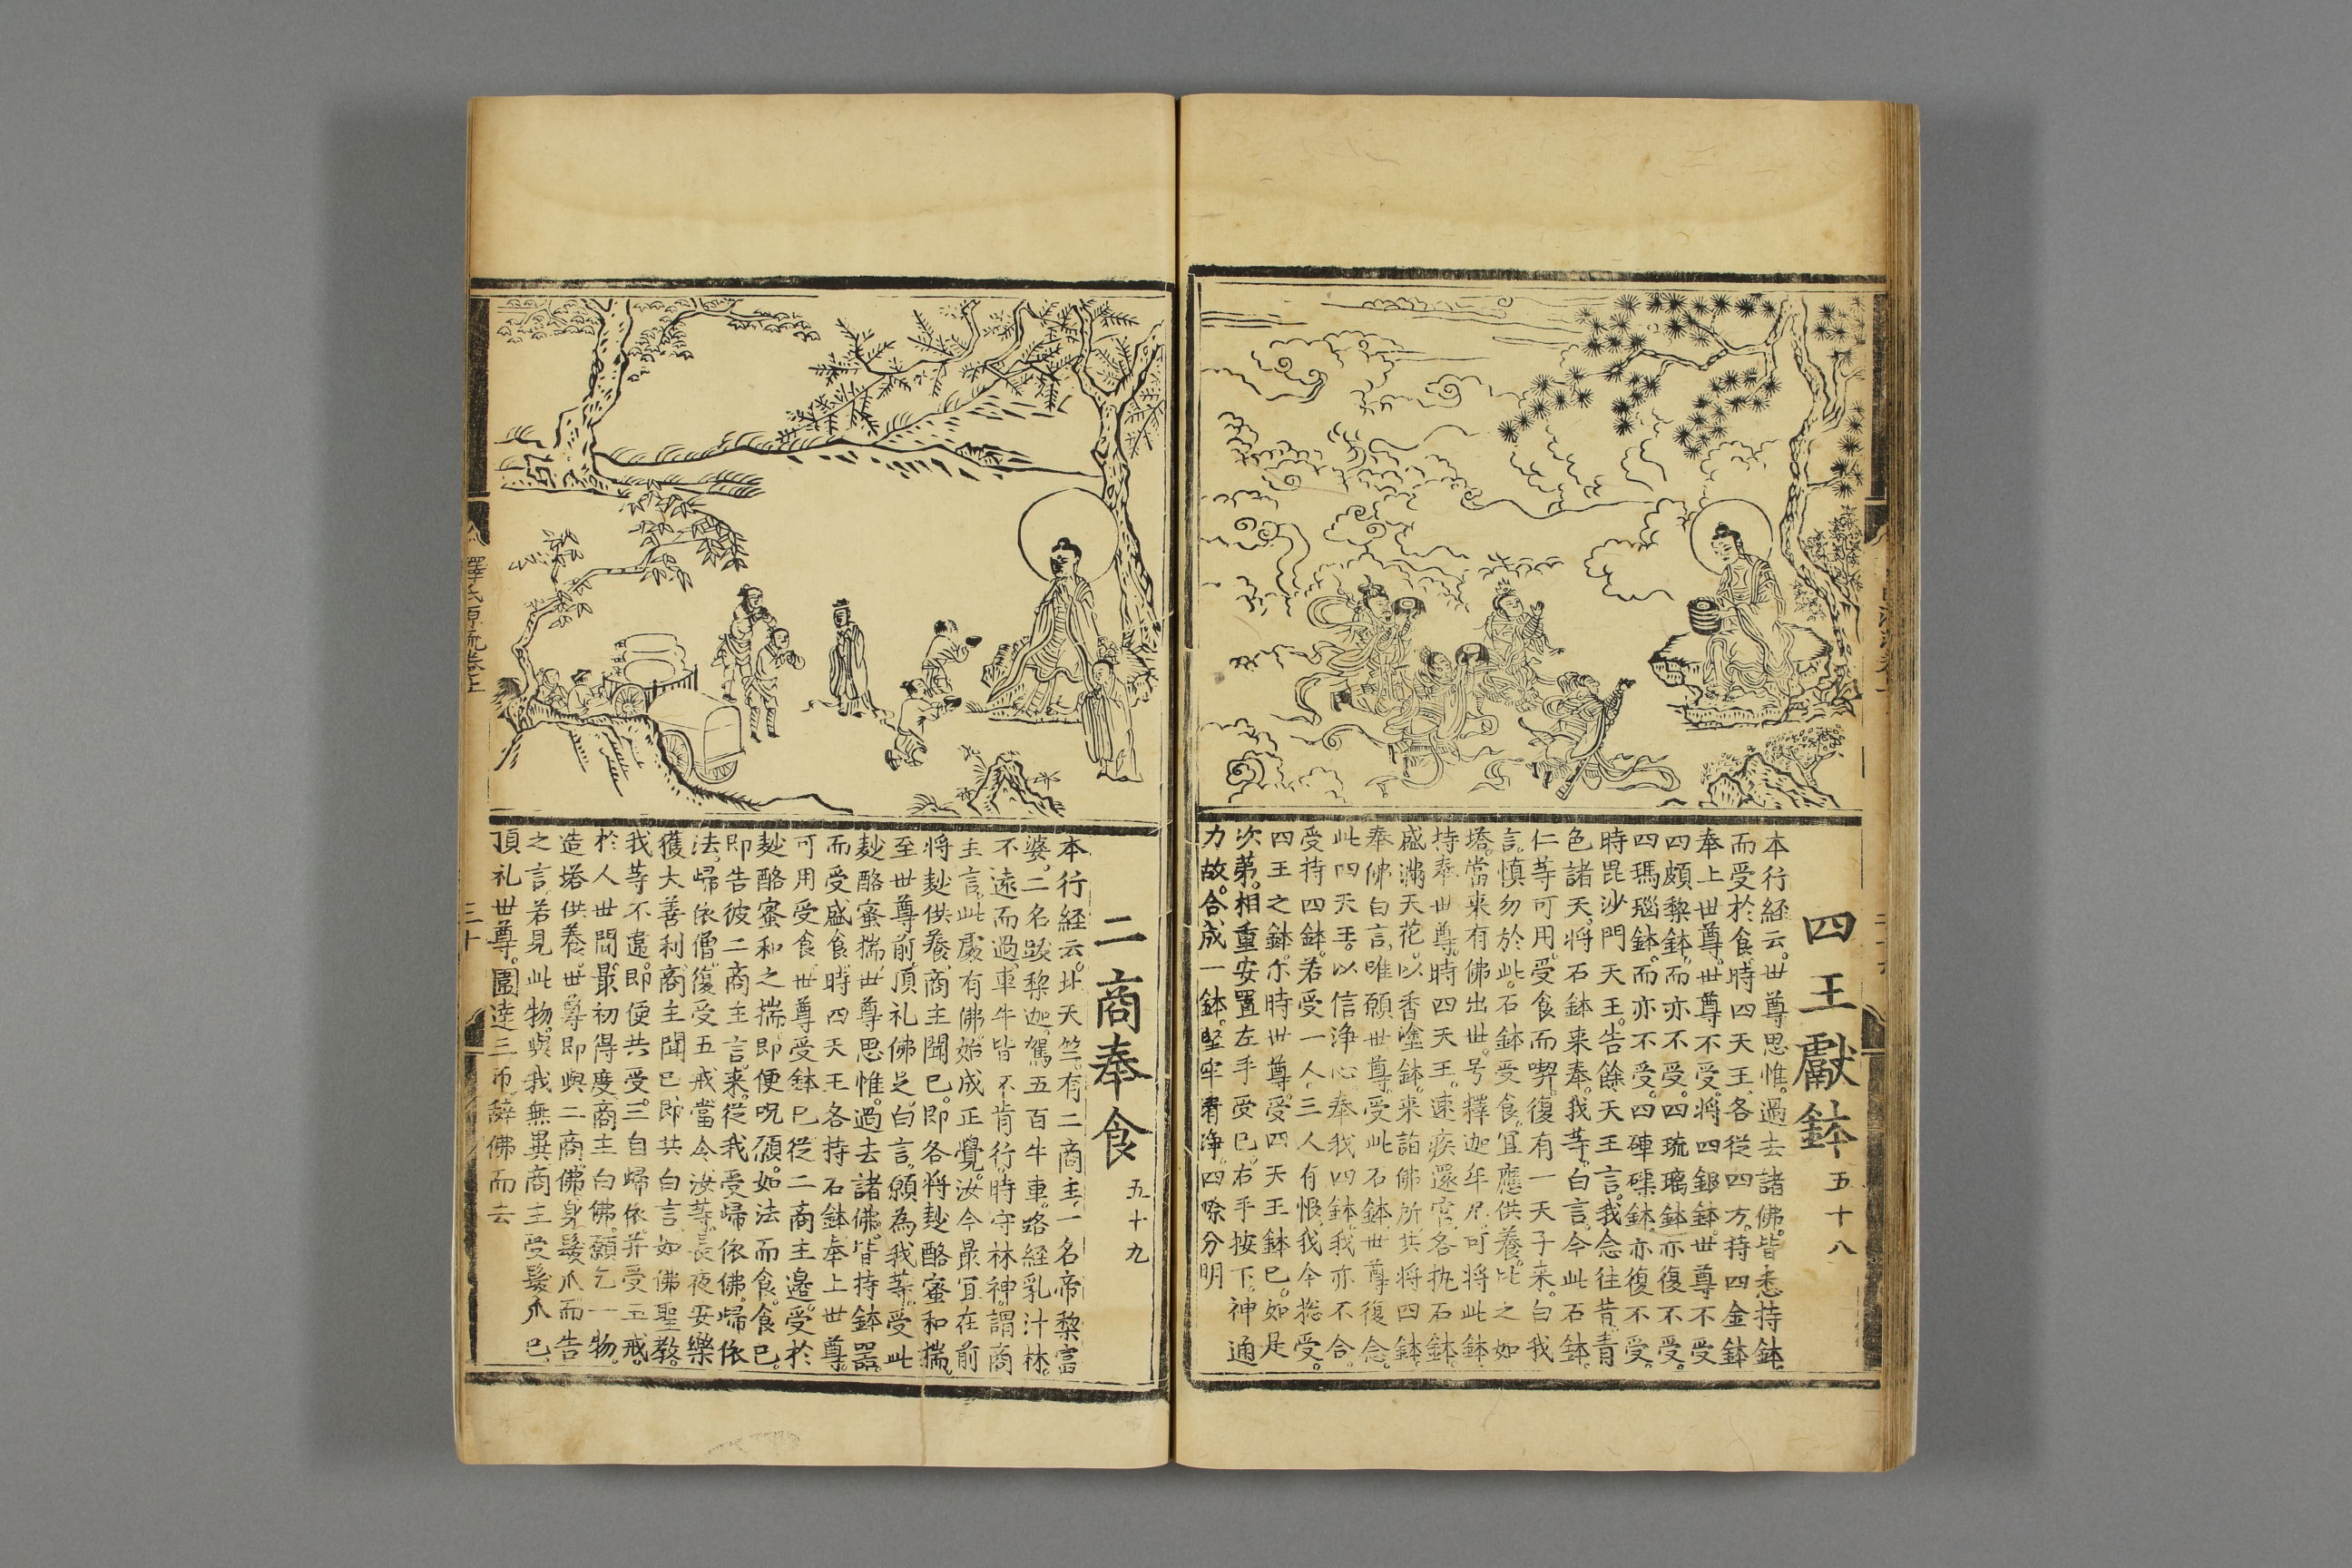 四王獻鉢 五十八
本行経云。世尊思惟。過去諸佛。皆悉持鉢
而受於食。時四天王。各從四方。持四金鉢
奉上世尊。世尊不受。將四銀鉢。世尊不受
四頗黎鉢。而亦不受。四琉璃鉢。亦復不受。
四瑪瑙鉢。而亦不受。四硨磲鉢。亦復不受。
時毘沙門天王。告餘天王言。我念往昔。青
色諸天。將石鉢来奉。我等。白言。今此石鉢。
仁等可用。受食而喫。復有一天子来。白我
言。慎勿於此。石鉢受食。宜應供養。比之如
塔。當来有佛出世。号釋迦牟尼。可將此鉢
持奉世尊。時四天王。速疾還宮。各执石鉢。
盛满天花。以香塗鉢。来詣佛所。共將四鉢。
奉佛白言。唯願世尊。受此石鉢。世尊復念。
此四天王。以信浄心。奉我四鉢。我亦不合。
受持四鉢。若受一人。三人有恨。我今揔受。
四王之鉢。尓時世尊。受四天王鉢已。如是
次第。相重安置左手受已。右手按下。神通
力故。合成一鉢。堅牢青浄。四際分明
二商奉食 五十九
本行経云。北天竺。有二商主。一名帝黎富
婆。二名跋黎迦。駕五百牛車。路経乳汁林。
不遠而過。車牛皆不肯行。時守林神。謂商
主言。此處有佛。始成正覺。汝今最宜在前
將麨供養。商主聞已。即各將麨酪蜜和揣。
至世尊前。頂礼佛足。白言。願為我等。受此
麨酪蜜揣。世尊思惟。過去諸佛。皆持鉢器。
而受盛食。時四天王各持石鉢奉上世尊。
可用受食。世尊受鉢已從二商主邊。受於
麨酪蜜和之揣。即便呪願。如法而食。食已。
即告彼二商主言。来。從我受歸依佛。歸依
法。歸依僧。復受五戒。當令汝等。長夜安樂
獲大善利。商主聞已。即共白言。如佛聖教。
我等不違。即便共受。三自歸依。并受五戒。
於人世間。最初得度。商主白佛。願乞一物。
造塔供養。世尊即與二商。佛身髮爪。而告
之言。若見此物。與我無異。商主受髮爪已。
頂礼世尊。圍遶三帀。辭佛而去
釋氏源流卷上
三十